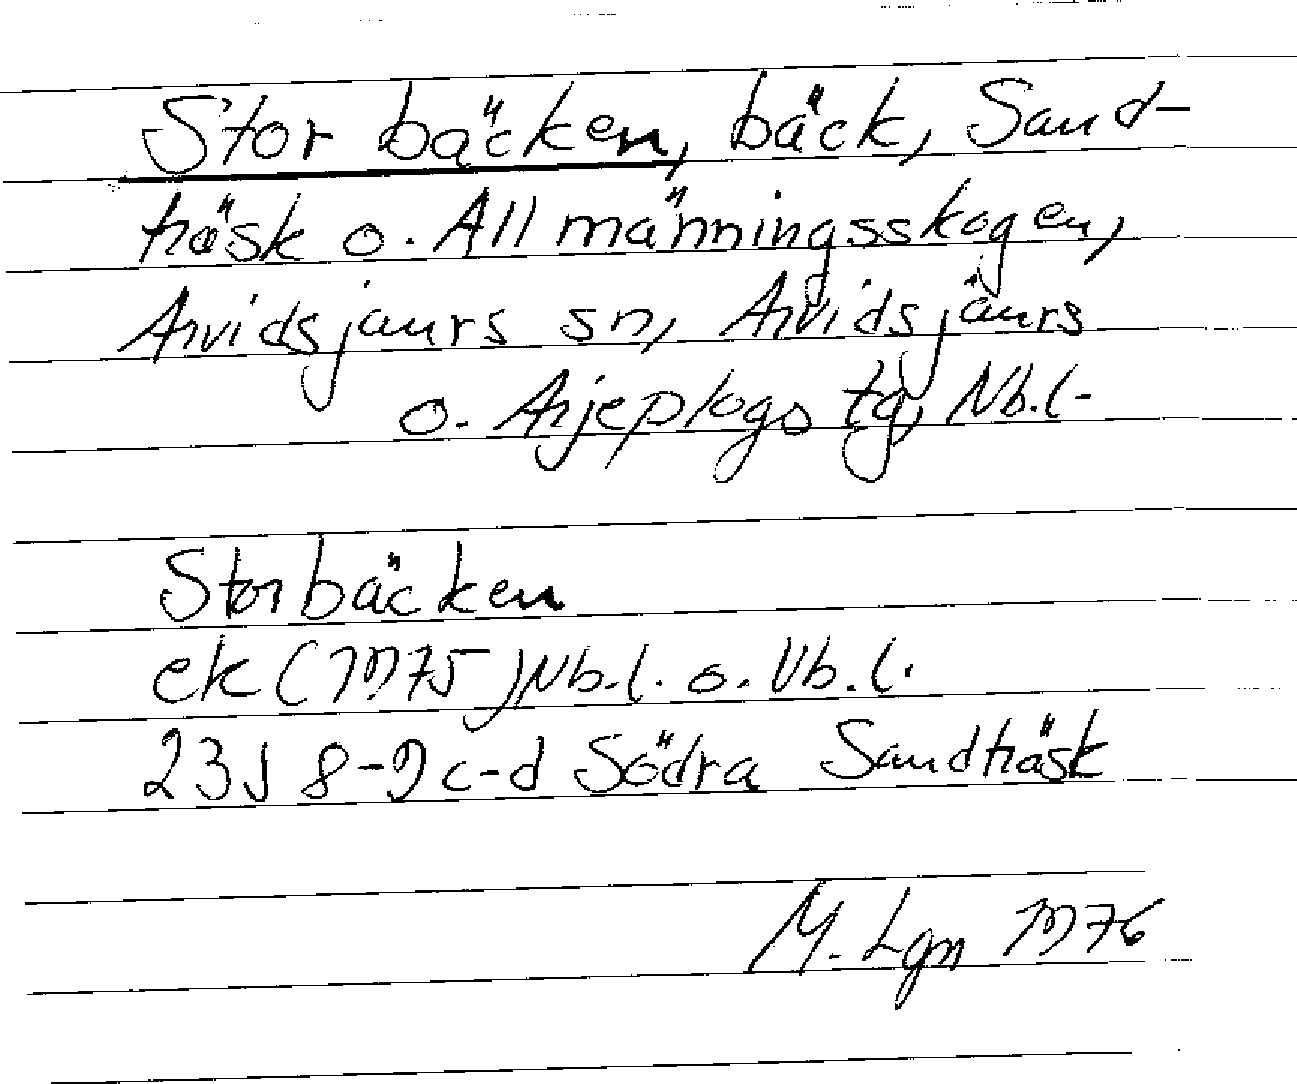 Storbäcken, bäck, Sand-
träsk o. Allmänningsskogen,
Arvidsjaurs sn, Arvidsjaurs
o. Arjeplogs tg, Nb.l.
Storbäcken
ek (1975) Nb.l. o. Vb.l.
23J 8-9 c-d Södra Sandträsk
M. Lgn 1976